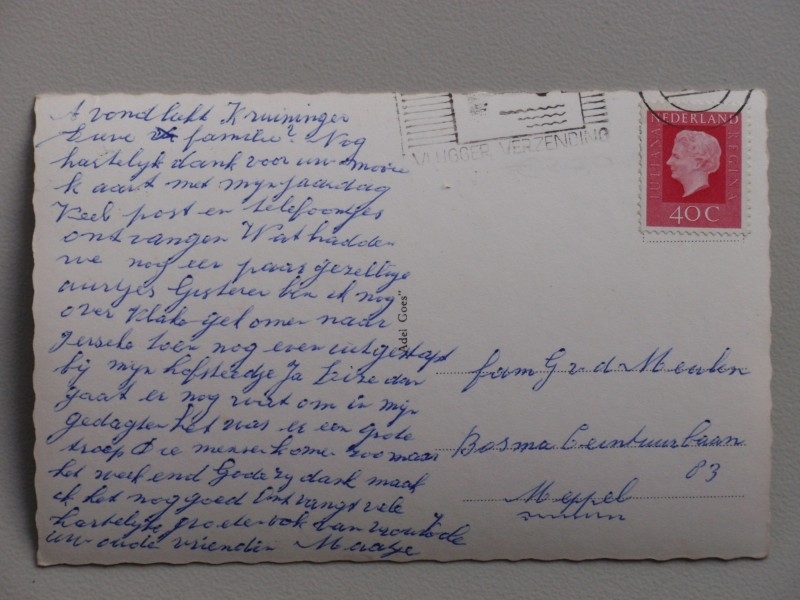 Avondlicht Kruininger
Lieve familie? Nog
hartelijk dank voor uw mooie
k aart met mijn jaardag
Veel post en telefoontjes
ontvangen Wat hadden
we nog een paar gezellige
uurtjes Gisteren ben ik nog
over gekomen naar
Jerseke toen nog even uitgestapt
bij mijn hofsteedje Ja dan
gaat er nog wat om in mijn
gedagten Het was er een grote
troep Die mensen komen zoo maar
het week end Gode zij dank maak
ik het nog goed Ontvangt vele
hartelijke groeten ook van
uw oude vriendin Maatje
"Adel Goes"
VLUGGER VERZENDING
NEDERLAND
JULIANA
REGINA
40 C
fam G v d Meulen
Bosma Ceintuurbaan
83
Meppel